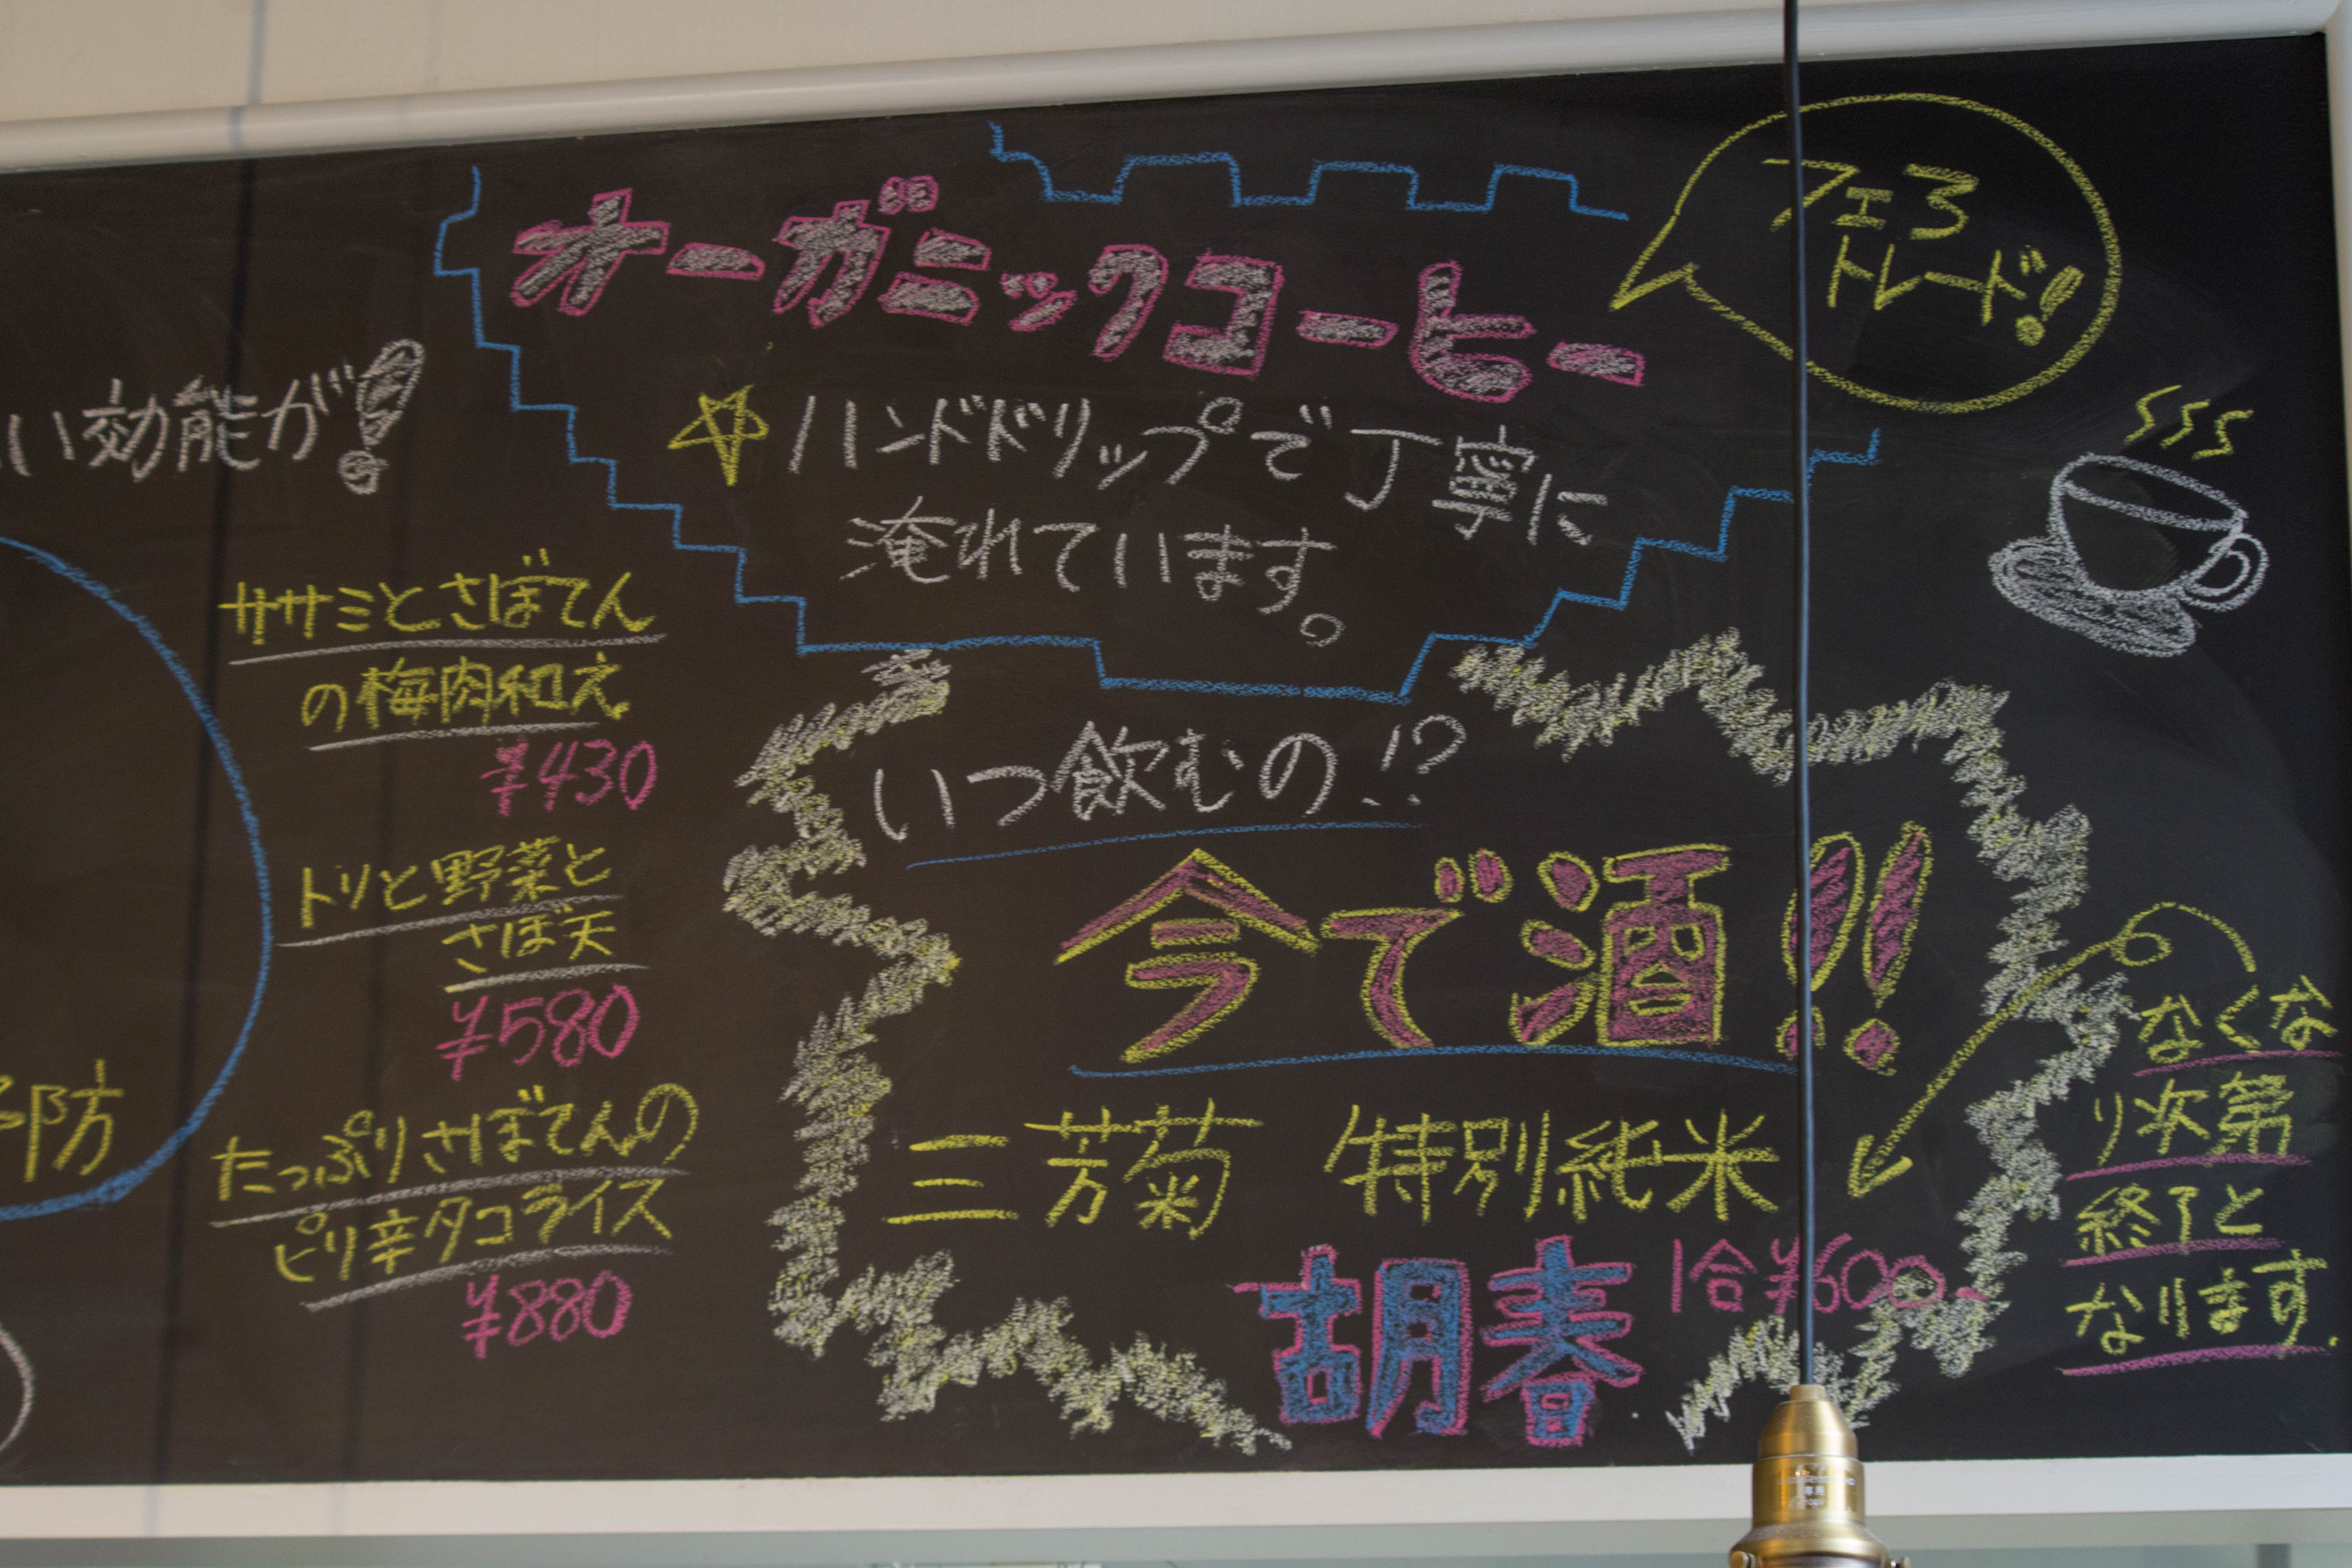 い効能が!
ササミとさぼてん
の梅肉和え
¥430
トリと野菜と
さぼ天
¥580
たっぷりさぼてんの
ピリ辛タコライス
¥880
防
オーガニックコーヒー
フェアトレード!
ハンドドリップで丁寧に
淹れています。
いつ飲むの!?
今で酒!!
三芳菊 特別純米
胡春 1合¥600
なくな
り次第
終了と
なります.